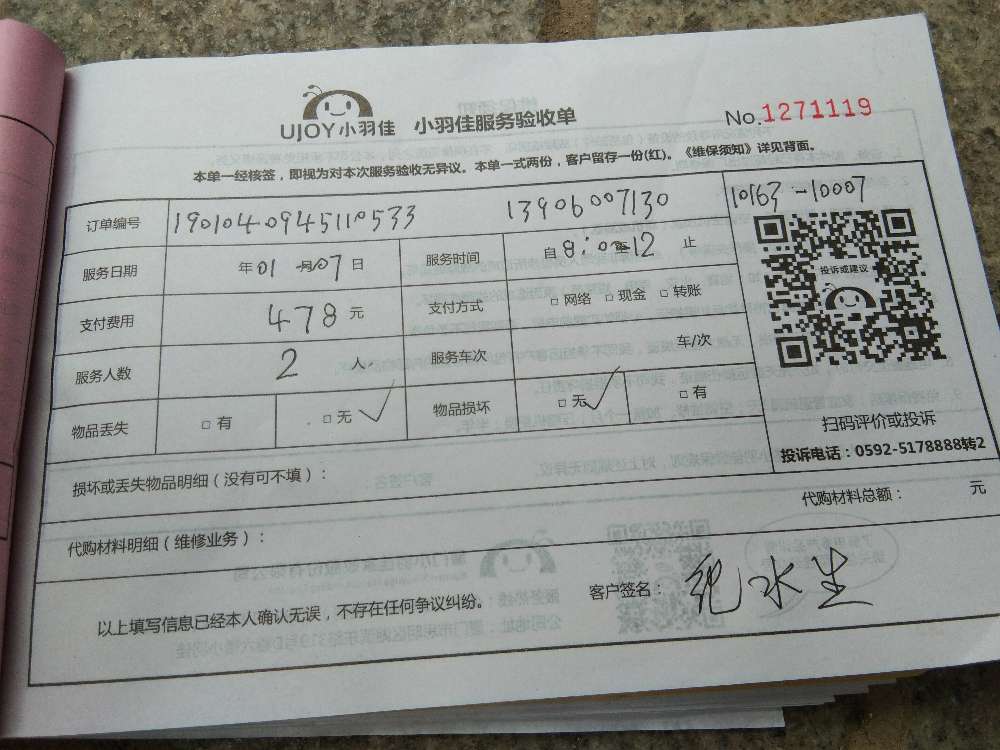 UJOY小羽佳 小羽佳服务验收单 No.1271119
本单一经核签，即视为对本次服务验收无异议。本单一式两份，客户留存一份(红)。《维保须知》详见背面。
订单编号 1901040945110533 13906007130 10163-10007
服务日期 年01月07日 服务时间 自8:0至12止
支付费用 478元 支付方式 □网络 □现金 □转账
投诉或建议
服务人数 2人 服务车次 车/次
物品丢失 □有 □无✓ 物品损坏 □无✓ □有
扫码评价或投诉
投诉电话：0592-5178888转2
损坏或丢失物品明细（没有可不填）：
代购材料总额： 元
代购材料明细（维修业务）：
以上填写信息已经本人确认无误，不存在任何争议纠纷。 客户签名： 水生